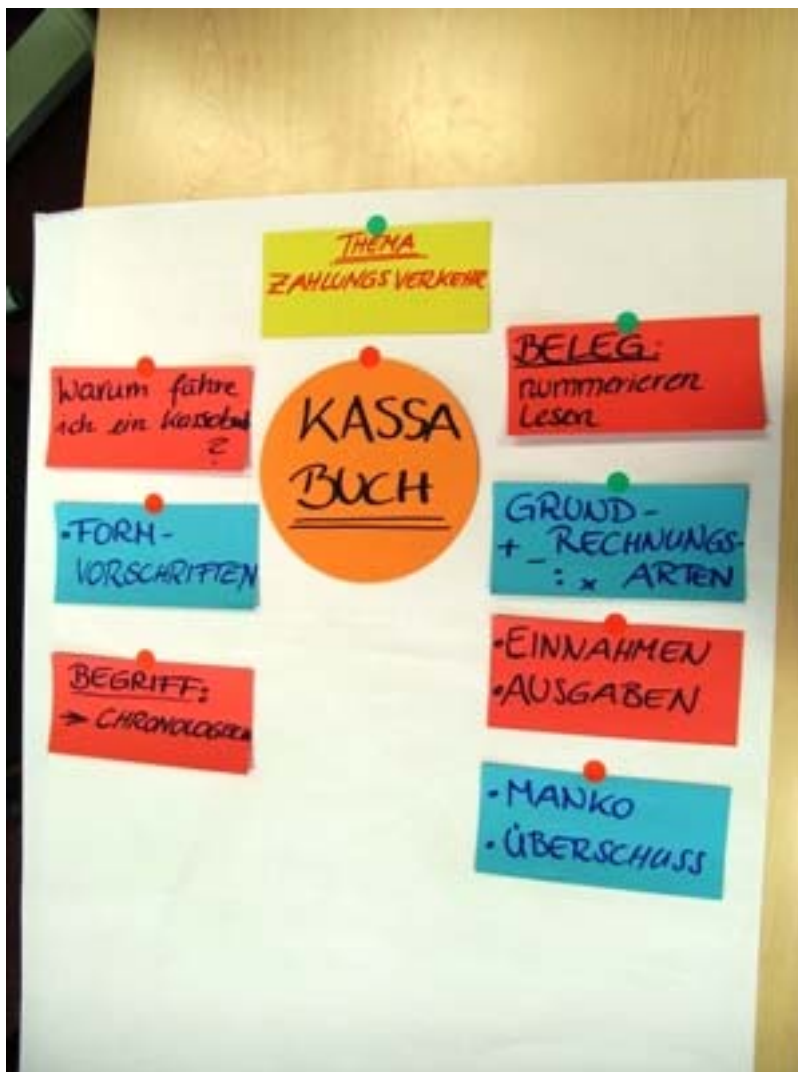 THEMA
ZAHLUNGSVERKEHR
KASSA
BUCH
Warum führe
ich ein Kassabuch
?
• FORM-
VORSCHRIFTEN
BEGRIFF:
→ CHRONOLOGISCH
BELEG:
nummerieren
Lesen
GRUND-
+ - RECHNUNGS-
: x ARTEN
• EINNAHMEN
• AUSGABEN
• MANKO
• ÜBERSCHUSS